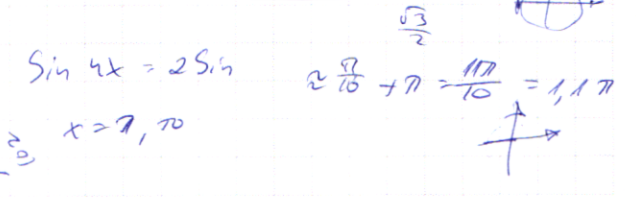 √3/2
Sin 4x = 2 Sin
≈ π/10 + π = 11π/10 = 1,1 π